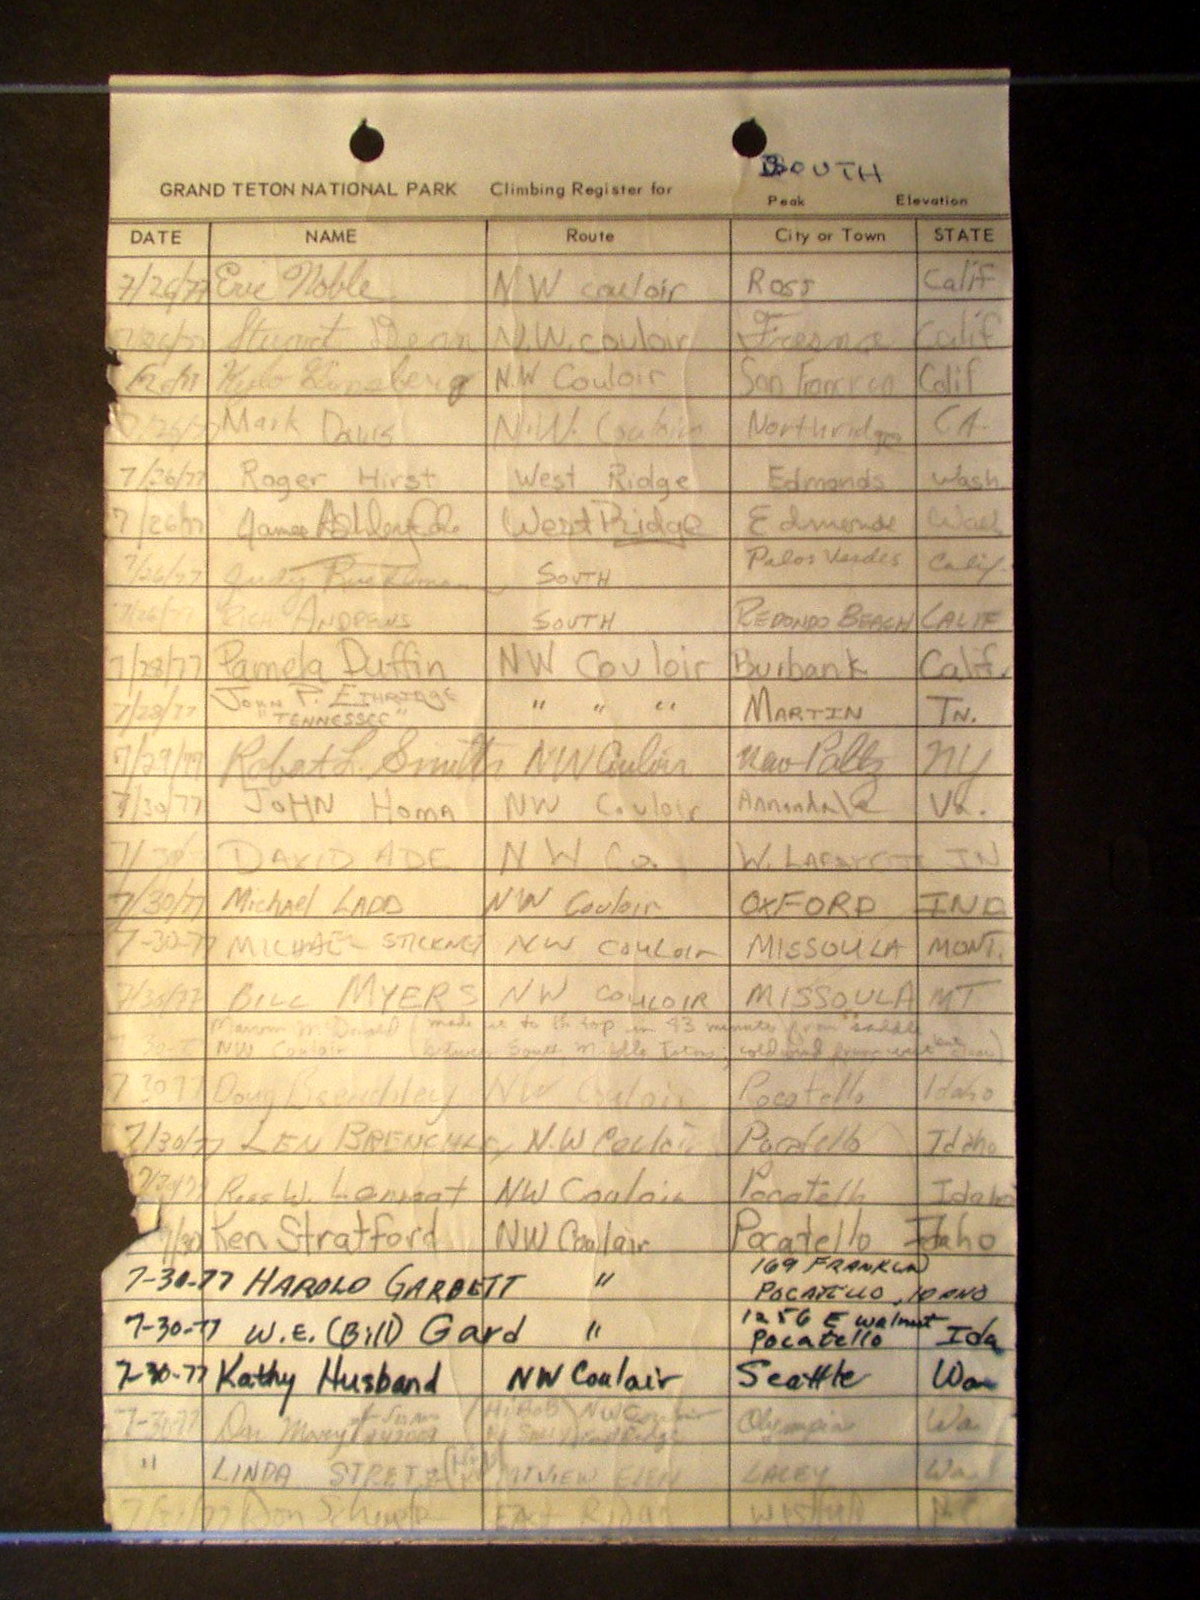 SOUTH
GRAND TETON NATIONAL PARK Climbing Register for
Peak Elevation
DATE NAME Route City or Town STATE
Eric Noble NW couloir Ross Calif
Stuart N.W. couloir Fresno Calif
Ginsberg N.W Couloir Calif
Mark Davis N.W. Northridge CA.
7/26/77 Roger Hirst West Ridge Edmonds Wash
7/26/77 James West Ridge Edmonds Wash
7/26/77 Judy SOUTH Palos Verdes Calif.
7/26/77 RICH ANDREWS SOUTH REDONDO BEACH CALIF
7/28/77 Pamela Duffin NW Couloir Burbank Calif.
7/28/77 JOHN P. ETHRIDGE "TENNESSEE" " " " MARTIN TN.
7/29/77 Robert L. Smith NW Couloir New Paltz NY
7/30/77 JOHN HOMA NW Couloir Annandale Va.
7/30 DAVID ADE NW Co. W. LAFAYETTE IN
7/30/77 Michael LADD NW Couloir OXFORD IND
7-30-77 MICHAEL STICKNEY NW COULOIR MISSOULA MONT.
7/30/77 BILL MYERS NW COULOIR MISSOULA MT
(made it to the top in 43 minutes from saddle
NW Couloir between South
7-30-77 Doug Brenchley NW Couloir Pocatello Idaho
7/30/77 LEN BRENCHLEY N.W Couloir Pocatello Idaho
W. NW Couloir Pocatello Idaho
7/30 Ken Stratford NW Coulair Pocatello Idaho
7-30-77 HAROLD GARBETT " 169 FRANKLIN
POCATELLO, IDAHO
7-30-77 W.E. (Bill) Gard " 1256 E walnut
Pocatello Ida
7-30-77 Kathy Husband NW Coulair Seattle Wa
7-30-77 Olympia Wa
" LINDA LACEY Wa
Don EAST RIDGE